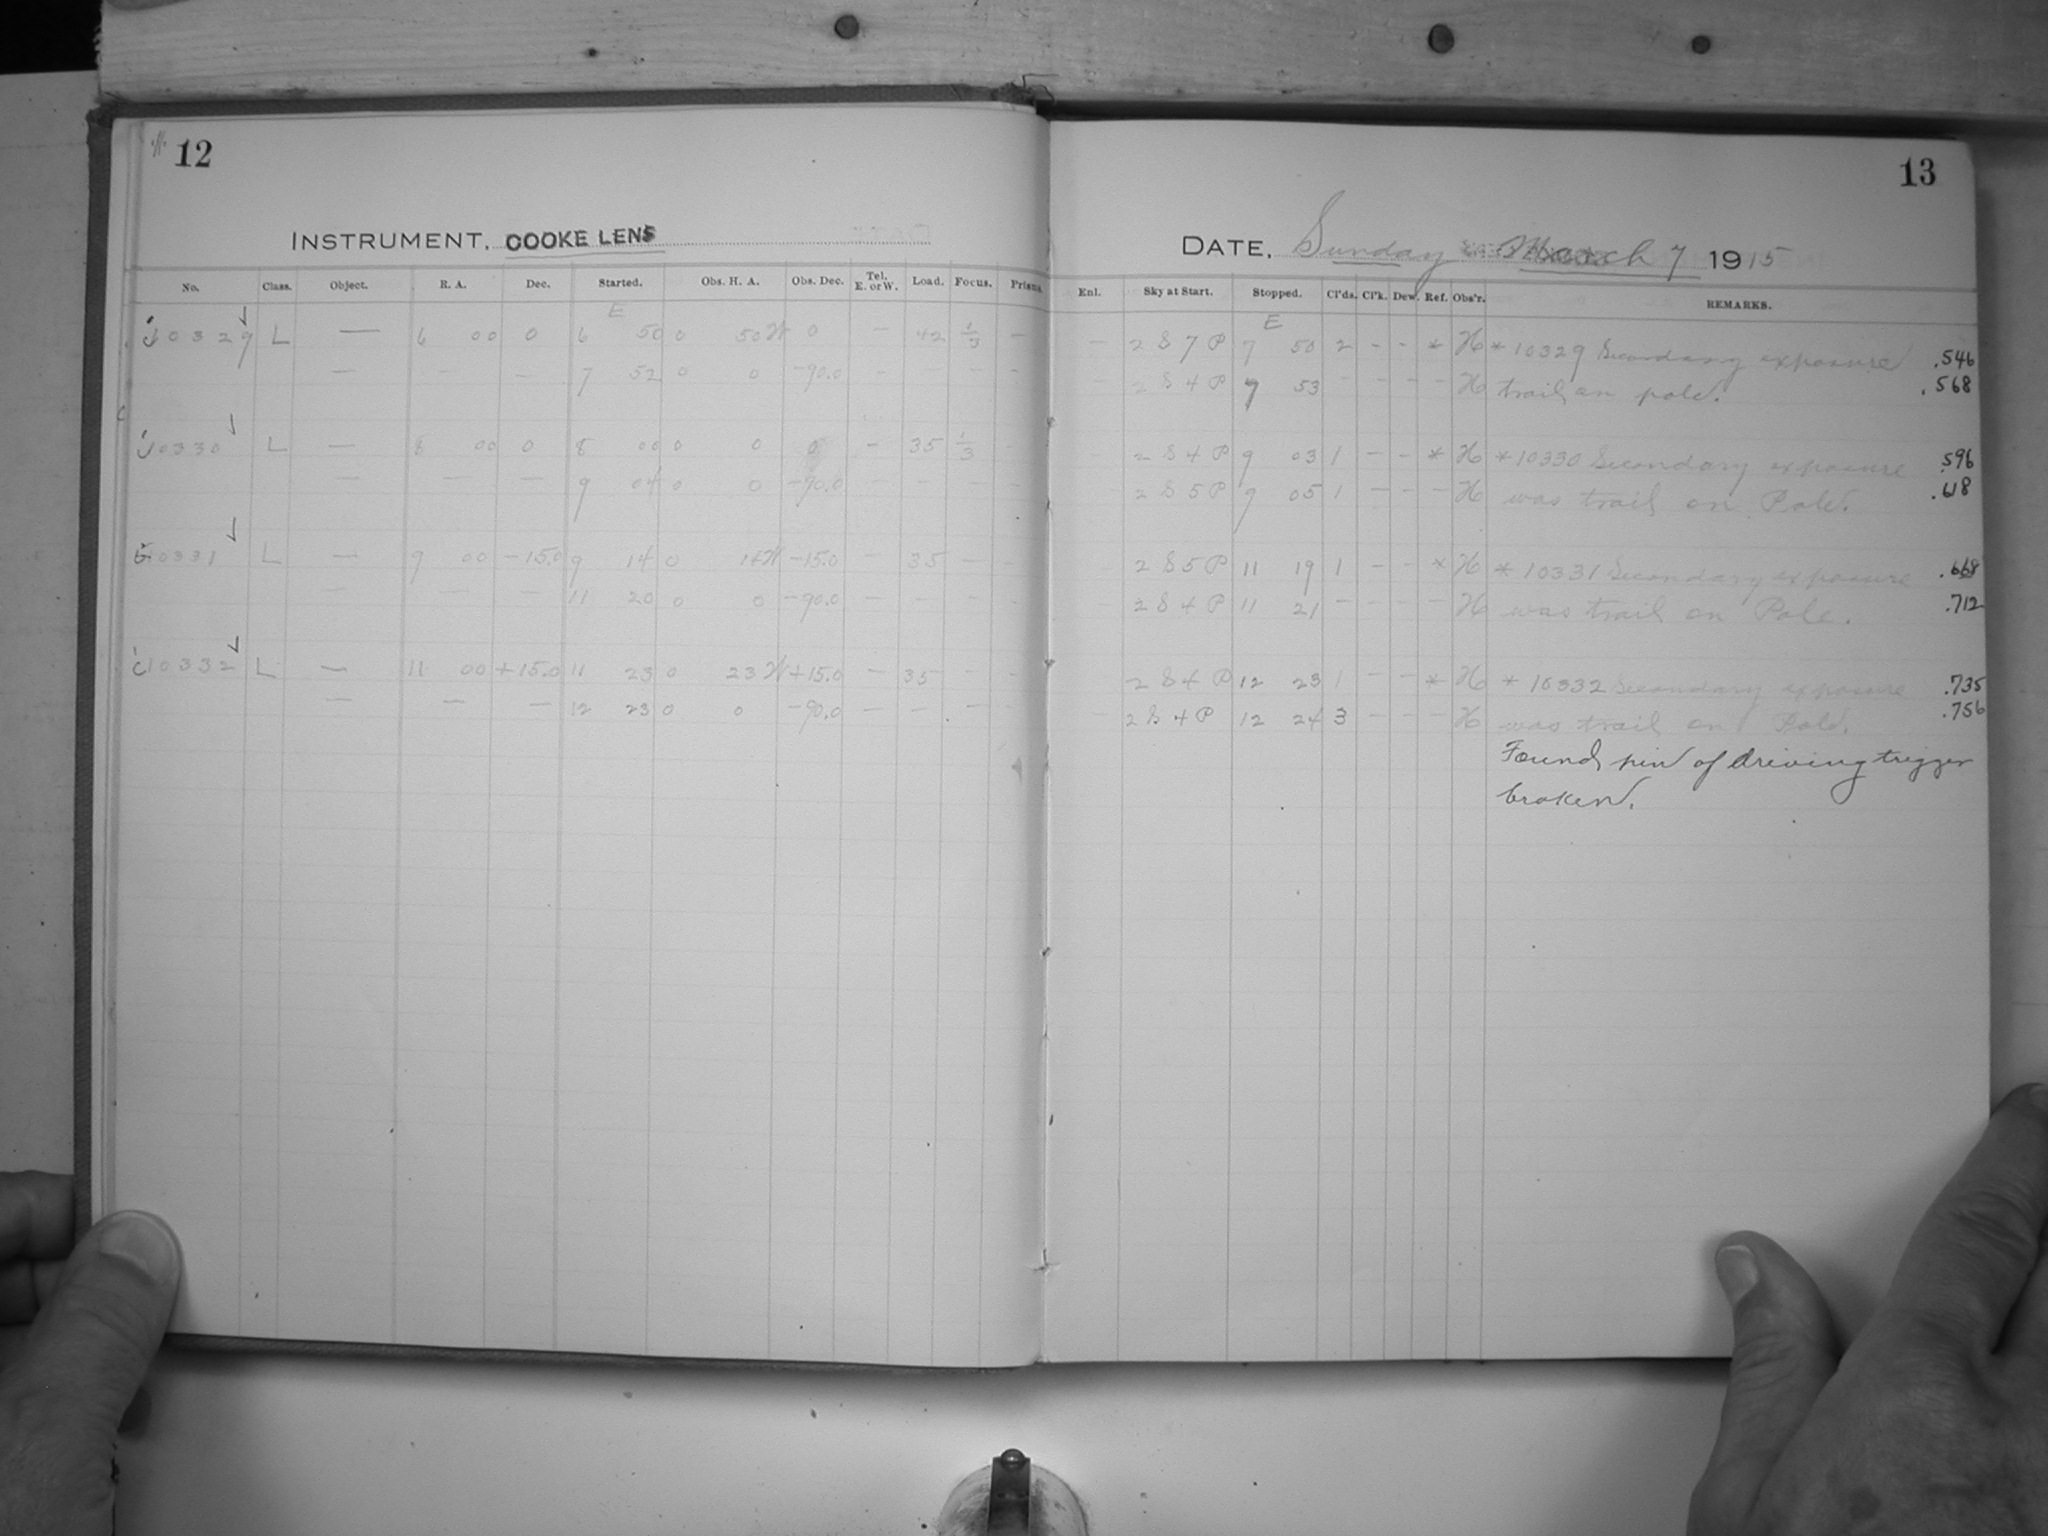 12
INSTRUMENT, COOKE LENS
No. Class. Object. R. A. Dec. Started. Obs. H. A. Obs. Dec. Tel. E. or W. Load. Focus. Prisms.
E
10329 L — 6 00 0 6 50 0 50 W 0 – 42 1/3 –
— — — 7 52 0 0 –90.0 – – – –
10330 L — 8 00 0 8 00 0 0 0 – 35 1/3 –
— — — 9 04 0 0 –90.0 – – – –
10331 L — 9 00 –15.0 9 14 0 14W –15.0 – 35 – –
— — — 11 20 0 0 –90.0 – – – –
10332 L — 11 00 +15.0 11 23 0 23 W +15.0 – 35 –
— — — 12 23 0 0 –90.0 – – – –
13
DATE, Sunday March 7 1915
Enl. Sky at Start. Stopped. Cl'ds. Cl'k. Dew. Ref. Obs'r. REMARKS.
E
– 2 S 7 P 7 50 2 – – * H * 10329 Secondary exposure .546
– 2 S 4 P 7 53 – – – – H trail on pole. .568
2 S 4 P 9 03 1 – – * H * 10330 Secondary exposure .596
2 S 5 P 9 05 1 – – – H was trail on Pole. .618
2 S 5 P 11 19 1 – – * H * 10331 Secondary exposure .668
2 S 4 P 11 21 – – – – H was trail on Pole. .712
2 S 4 P 12 23 1 – – * H * 10332 Secondary exposure .735
– 2 S 4 P 12 24 3 – – – H was trail on Pole. .756
Found pin of driving trigger
broken.